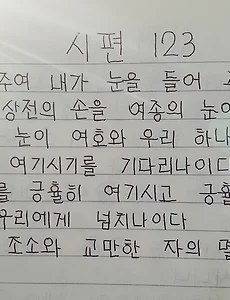 시편 123
주여 내가 눈을 들어
상전의 손을 여종의 눈이
눈이 여호와 우리 하나
여기시기를 기다리나이다
를 긍휼히 여기시고 긍휼
우리에게 넘치나이다
조소와 교만한 자의 멸